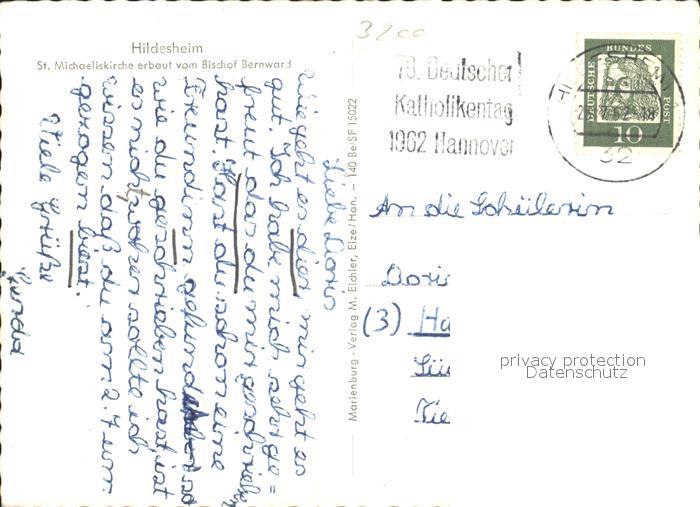 32,00
Hildesheim
St. Michaeliskirche erbaut vom Bischof Bernward
Liebe Doris
Wie geht es dir mir geht es
gut. Ich habe mich sehr ge=
freut das du mir geschrieben
hast. Hast du schon eine
Freundinn gefunden
wie du geschrieben hast ist
es nicht sicher sollte ich
wissen daß du am 2.7 um
gezogen bist.
Viele Grüße
Gerda
Marienburg - Verlag M. Eichler, Elze/Han. — 140 Be/SF 15022
76. Deutscher
Katholikentag
1962 Hannover
HILDESHEIM
32
DEUTSCHE BUNDESPOST
10
An die Schülerin
Doris
(3) Ha
privacy protection
Datenschutz